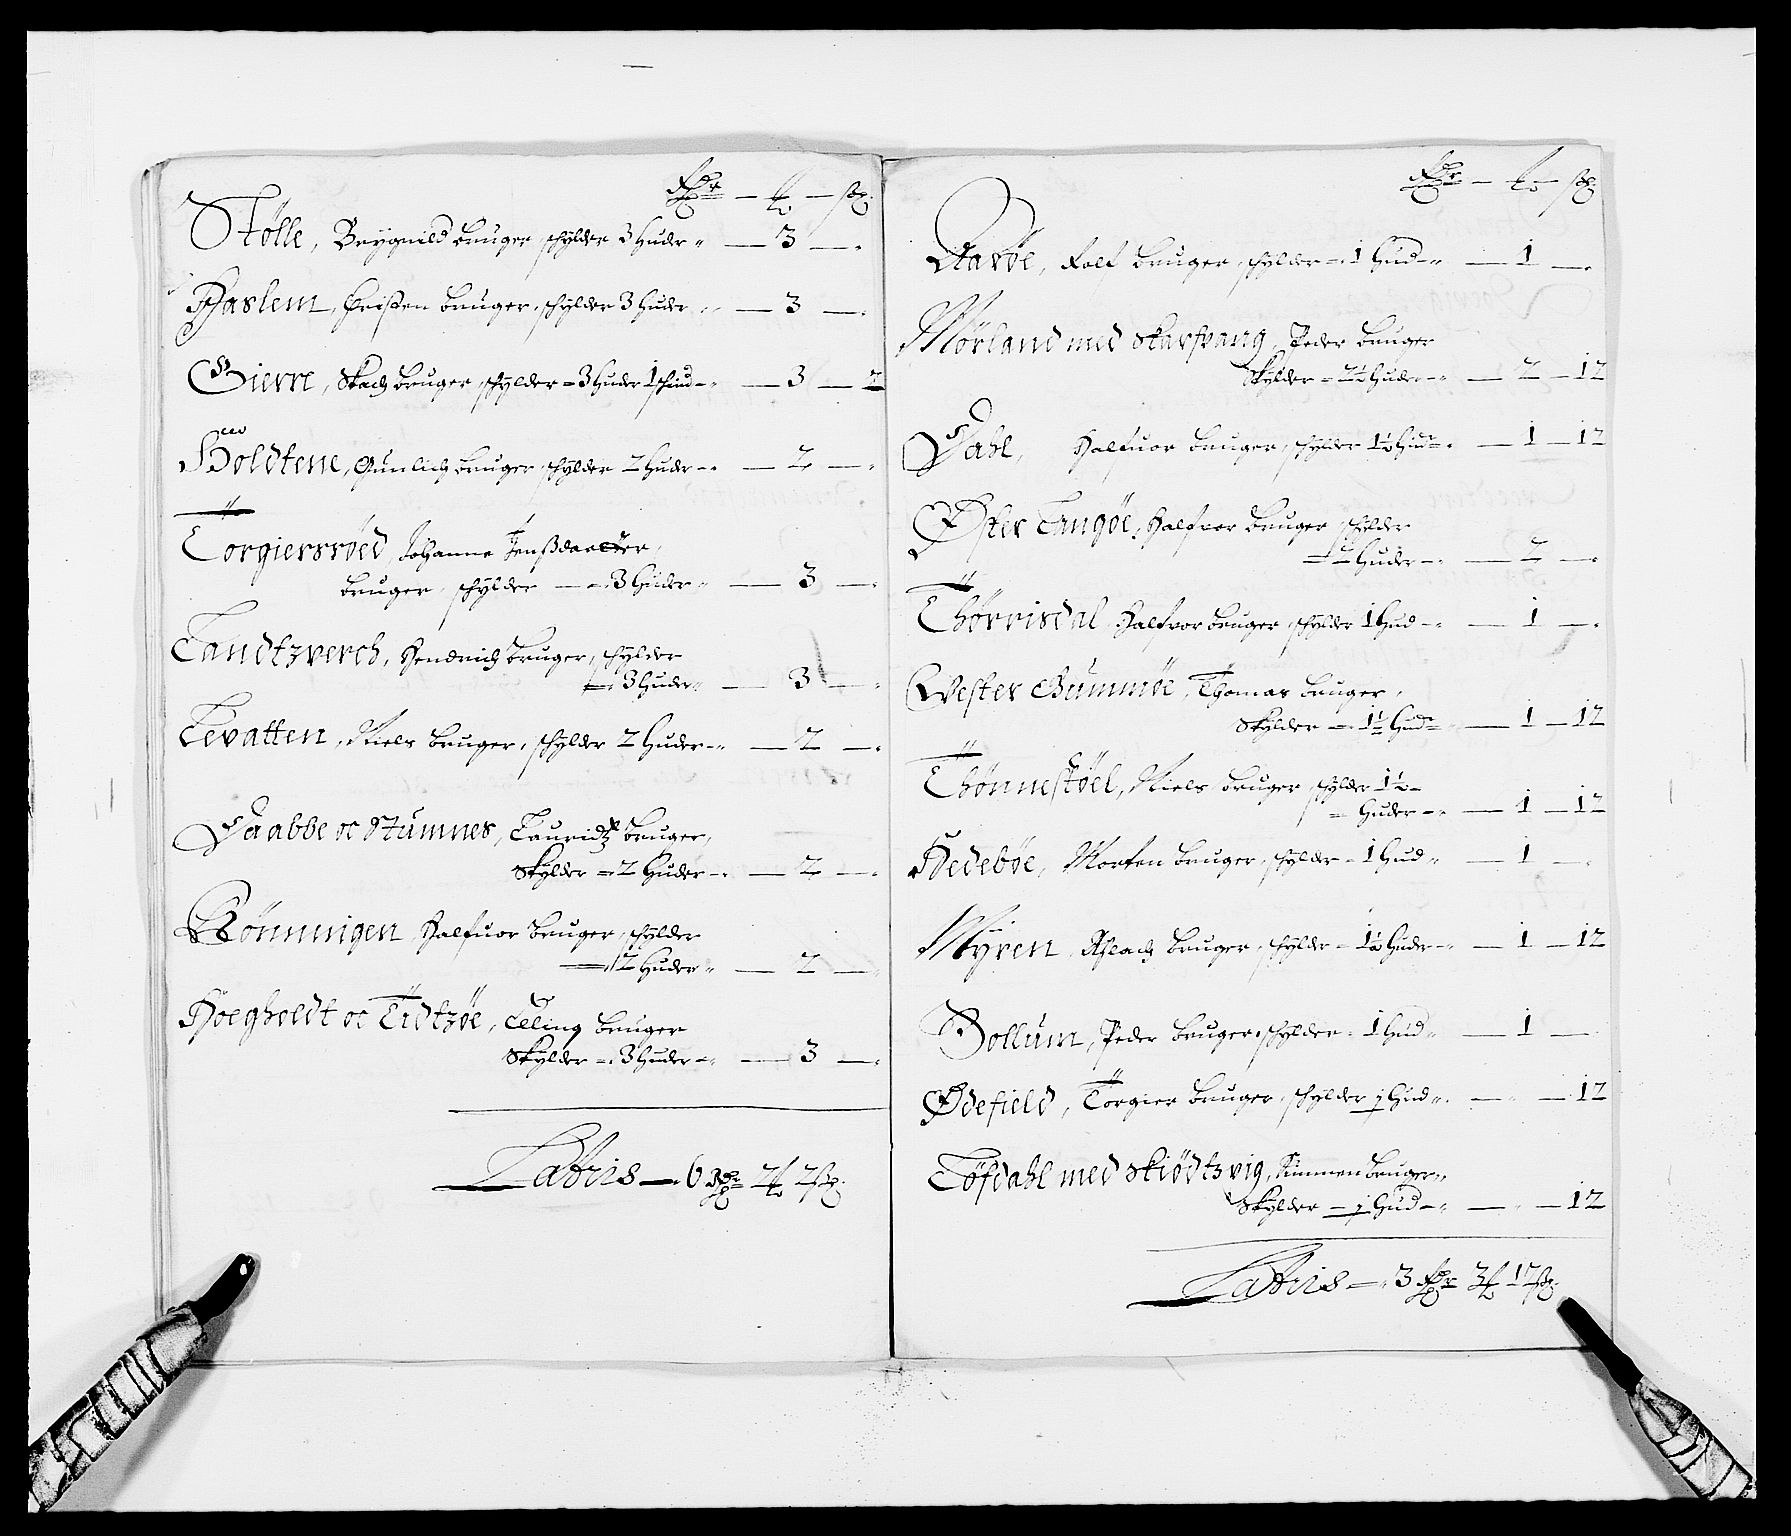 Rdr — ℔ — sk.
Stølle, Brygnild bruger schylder 3 Huder — 3 —
Haslem, Christen bruger, schylder 3 Huder — 3 —
Gierre, Skach bruger, schylder = 3 Huder 1 schind — 3 — 2
Holdtene, Gunlich bruger schylder 2 Huder — 2 —
Torgiersrøed, Johanne Jenßdaatter,
bruger, schylder — 3 Huder — 3 —
Landtzverch, Hendrich bruger, schylder
3 Huder — 3 —
Levatten, Niels bruger, schylder 2 Huder — 2 —
Daabbe oc Stumnes, Lauridtz bruger,
Skylder = 2 Huder — 2 —
Rønningen Halfuor bruger, schylder
2 Huder — 2 —
Hoegholdt oc Tidtzøe, Elling bruger
Skylder = 3 Huder — 3 —
Lateris — 6 Rdr 2 ℔ 2 sk.
Rdr — ℔ — sk.
Aarøe, Rolf bruger, schylder = 1 Hud — 1 —
Mørland med Skarfvang, Peder bruger
Skylder = 2½ Huder — 2 — 12
Dahl, Halfuor bruger, schylder 1½ Hud — 1 — 12
Øster Langøe, Halfvor bruger schylder
2 Huder — 2 —
Thørrisdal Halfvor bruger, schylder 1 Hud — 1 —
Wester Gummøe, Thomas bruger,
Skylder — 1½ Hud — 1 — 12
Thønnestøel, Niels bruger schylder 1½
Huder — 1 — 12
Hedebøe, Morten bruger, schylder — 1 Hud — 1 —
Myren, Aslach bruger, schylder — 1½ Huder — 1 — 12
Bollum, Peder bruger, schylder — 1 Hud — 1 —
Ødefield, Torgier bruger, schylder ½ Hud — 12
Tofdahl med Skiødtzvig, Simmen bruger,
Skylder — ½ Hud — 12
Lateris — 3 Rdr 3 ℔ 12 sk.